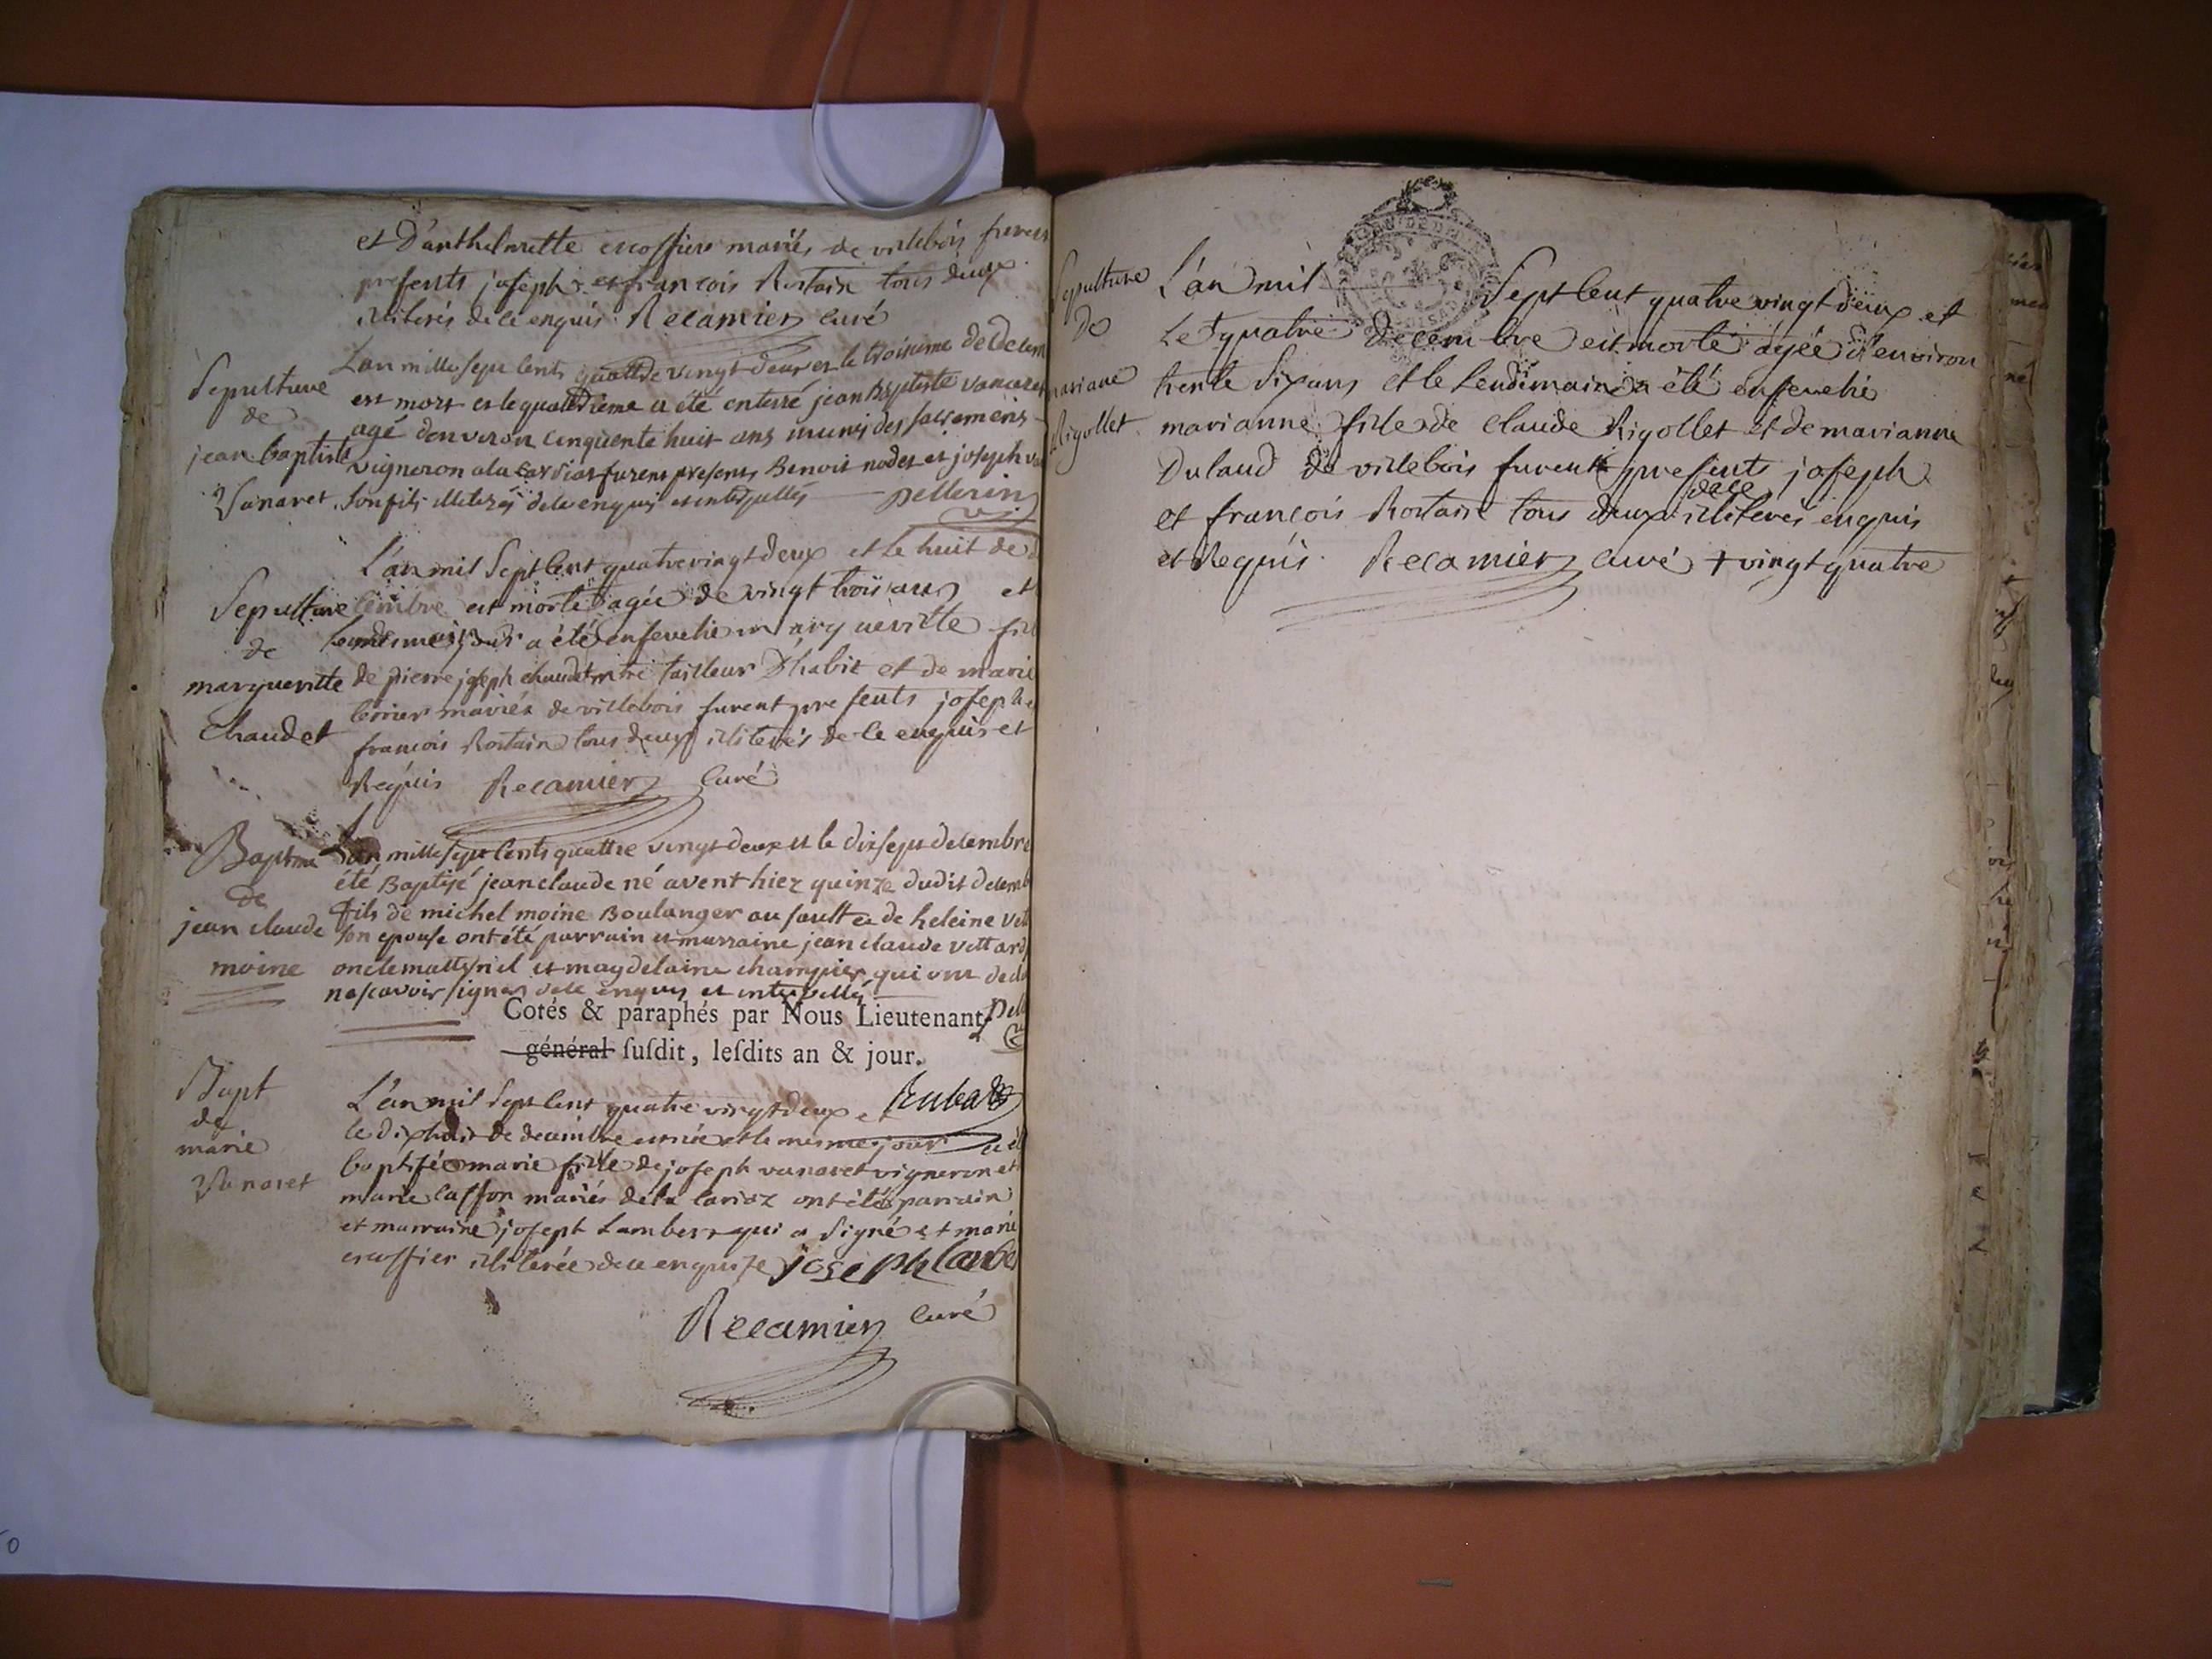 et D'anthelmette escoffier mariés de villebois furent
presents joseph et françois Rostain tous deux
illiterés de ce enquis Recamier curé
Sepulture
de
jean baptiste
Vanaret
L'an mille sept cents quattre vingt deux et le troisieme de decem
est mort et le quattrieme a été enterré jean Baptiste vanaret
agé d'enviroń cinquente huit ans munis des sacremens
vigneron a la cardias furent presents Benoit nodet et joseph va
son fils illiterés de ce enquis et interpellés Pellerin
Sepulture
de
margueritte
Chaudet
L'an mil Sept Cent quatrevingt deux et le huit de d
cembre est morte agée de vingt trois ans et
jour a été ensevelie margueritte fil
de pierre joseph chaudet mtre tailleur D'habit et de marie
mariés de villebois furent presents joseph e
françois Rostain tous deux illiterés de ce enquis et
Requis Recamier Curé
Baptme
de
jean claude
moine
L'an mille sept cents quattre vingt deux et le dix sept decembre
été Baptisé jean claude né avent hier quinze dudit decemb
fils de michel moine Boulanger au sault et de heleine vett
son epouse ont été parrain et marraine jean claude vettard
oncle matternel et magdelaine champier qui ont decla
ne scavoir signer de ce enquis et interpellés
Pell
Cotés & paraphés par Nous Lieutenant
général susdit, lesdits an & jour.
Bapt
de
marie
Vanaret
L'an mil Sept Cent quatre vingt deux et
le dix huit de decembre est née et le mesme jour a ét
baptisée marie fille de joseph vanaret vigneron et
marie Casson mariés de la carioz ont étés parrain
et marraine joseph Lambert qui a signé et marie
escoffier illiterée de ce enquise joseph lambe
Recamier Curé
Sepulture
de
mariane
Rigollet
L'an mil Sept Cent quatre vingt deux et
Le + quatre decembre est morte agée d'environ
trente six ans et le lendemain a été ensevelie
marianne fille de Claude Rigollet et de marianne
Dulaud de villebois furent presents joseph
et françois Rostain tous deux illiterés de ce enquis
et Requis Recamier curé + vingt quatre